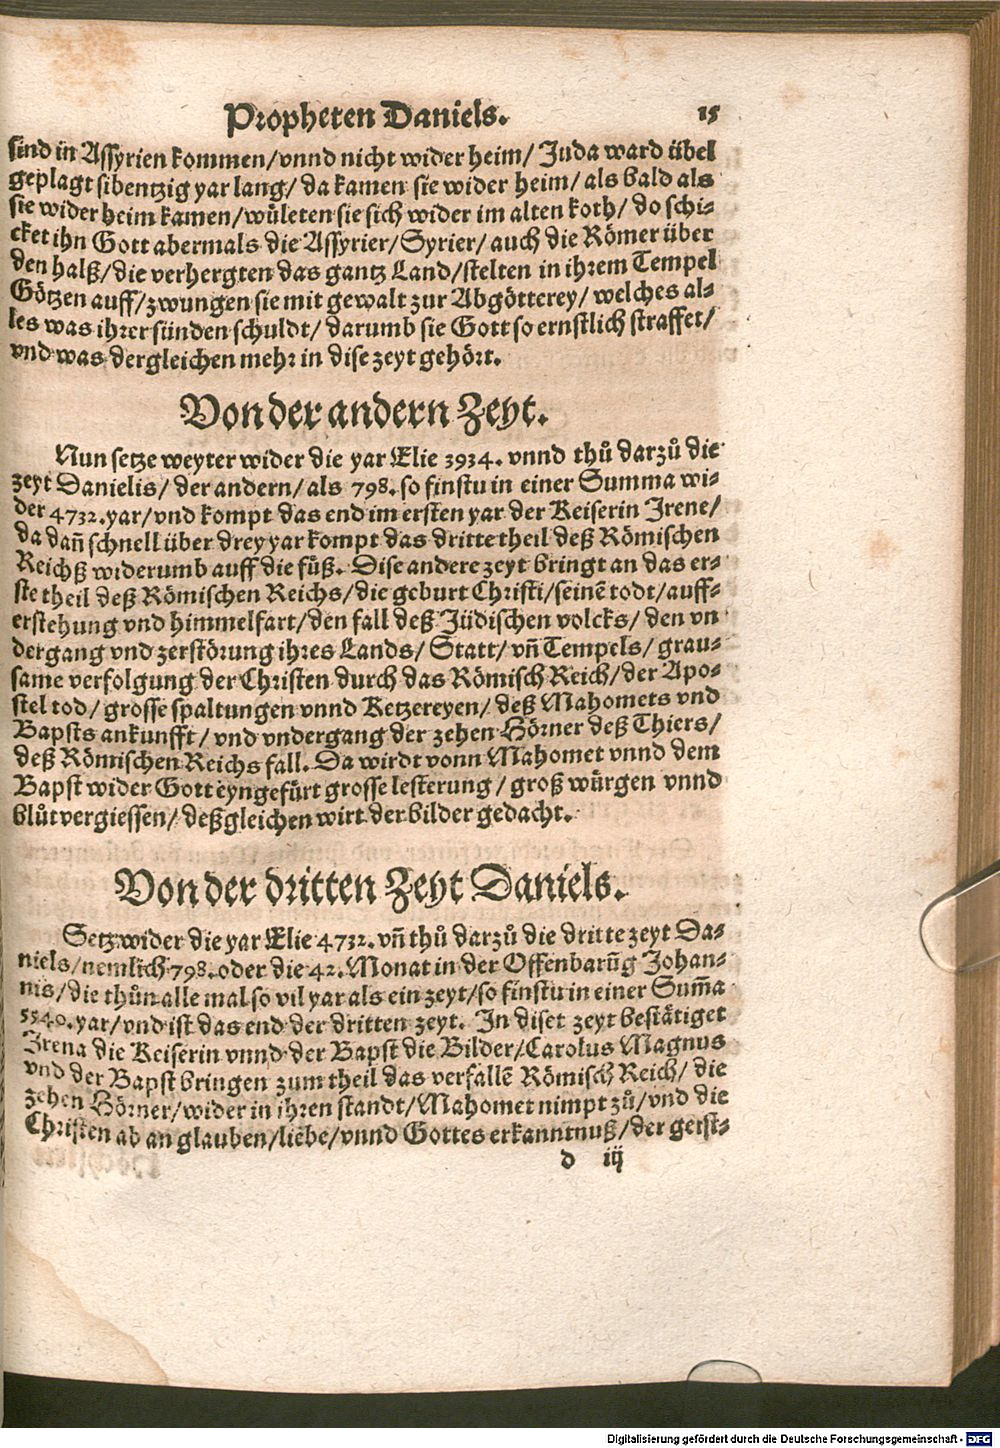 Propheten Daniels. 15
sind in Assyrien kommen/vnnd nicht wider heim/ Juda ward übel
geplagt sibentzig yar lang/ da kamen sie wider heim/ als bald als
sie wider heim kamen/wůleten sie sich wider im alten koth/ do schi-
cket ihn Gott abermals die Assyrier/Syrier/ auch die Römer über
den halß/die verhergten das gantz Land/stelten in ihrem Tempel
Götzen auff/zwungen sie mit gewalt zur Abgötterey/ welches al-
les was ihrer sünden schuldt/ darumb sie Gott so ernstlich straffet/
vnd was dergleichen mehr in dise zeyt gehört.
Von der andern Zeyt.
Nun setze weyter wider die yar Elie 3934. vnnd thů darzů die
zeyt Danielis/ der andern/ als 798. so finstu in einer Summa wi-
der 4732. yar/vnd kompt das end im ersten yar der Keiserin Irene/
da dañ schnell über drey yar kompt das dritte theil deß Römischen
Reichß widerumb auff die füß. Dise andere zeyt bringt an das er-
ste theil deß Römischen Reichs/die geburt Christi/seinē todt/auff-
erstehung vnd himmelfart/den fall deß Jüdischen volcks/ den vn
dergang vnd zerstörung ihres Lands/ Statt/ vñ Tempels/ grau-
same verfolgung der Christen durch das Römisch Reich/ der Apo-
stel tod/ grosse spaltungen vnnd Ketzereyen/ deß Mahomets vnd
Bapsts ankunfft/ vnd vndergang der zehen Hörner deß Thiers/
deß Römischen Reichs fall. Da wirdt vonn Mahomet vnnd dem
Bapst wider Gott eyngefürt grosse lesterung/ groß würgen vnnd
blůtvergiessen/ deßgleichen wirt der bilder gedacht.
Von der dritten Zeyt Daniels.
Setz wider die yar Elie 4732. vñ thů darzů die dritte zeyt Da-
niels/nemlich 798. oder die 42. Monat in der Offenbarūg Johan-
nis/die thůn alle mal so vil yar als ein zeyt/so finstu in einer Sum̃a
5540. yar/vnd ist das end der dritten zeyt. In diser zeyt bestätiget
Irena die Keiserin vnnd der Bapst die Bilder/Carolus Magnus
vnd der Bapst bringen zum theil das verfallē Römisch Reich/ die
zehen Hörner/wider in ihren standt/Mahomet nimpt zů/vnd die
Christen ab an glauben/liebe/vnnd Gottes erkanntnuß/der geist-
d iij
Digitalisierung gefördert durch die Deutsche Forschungsgemeinschaft - DFG